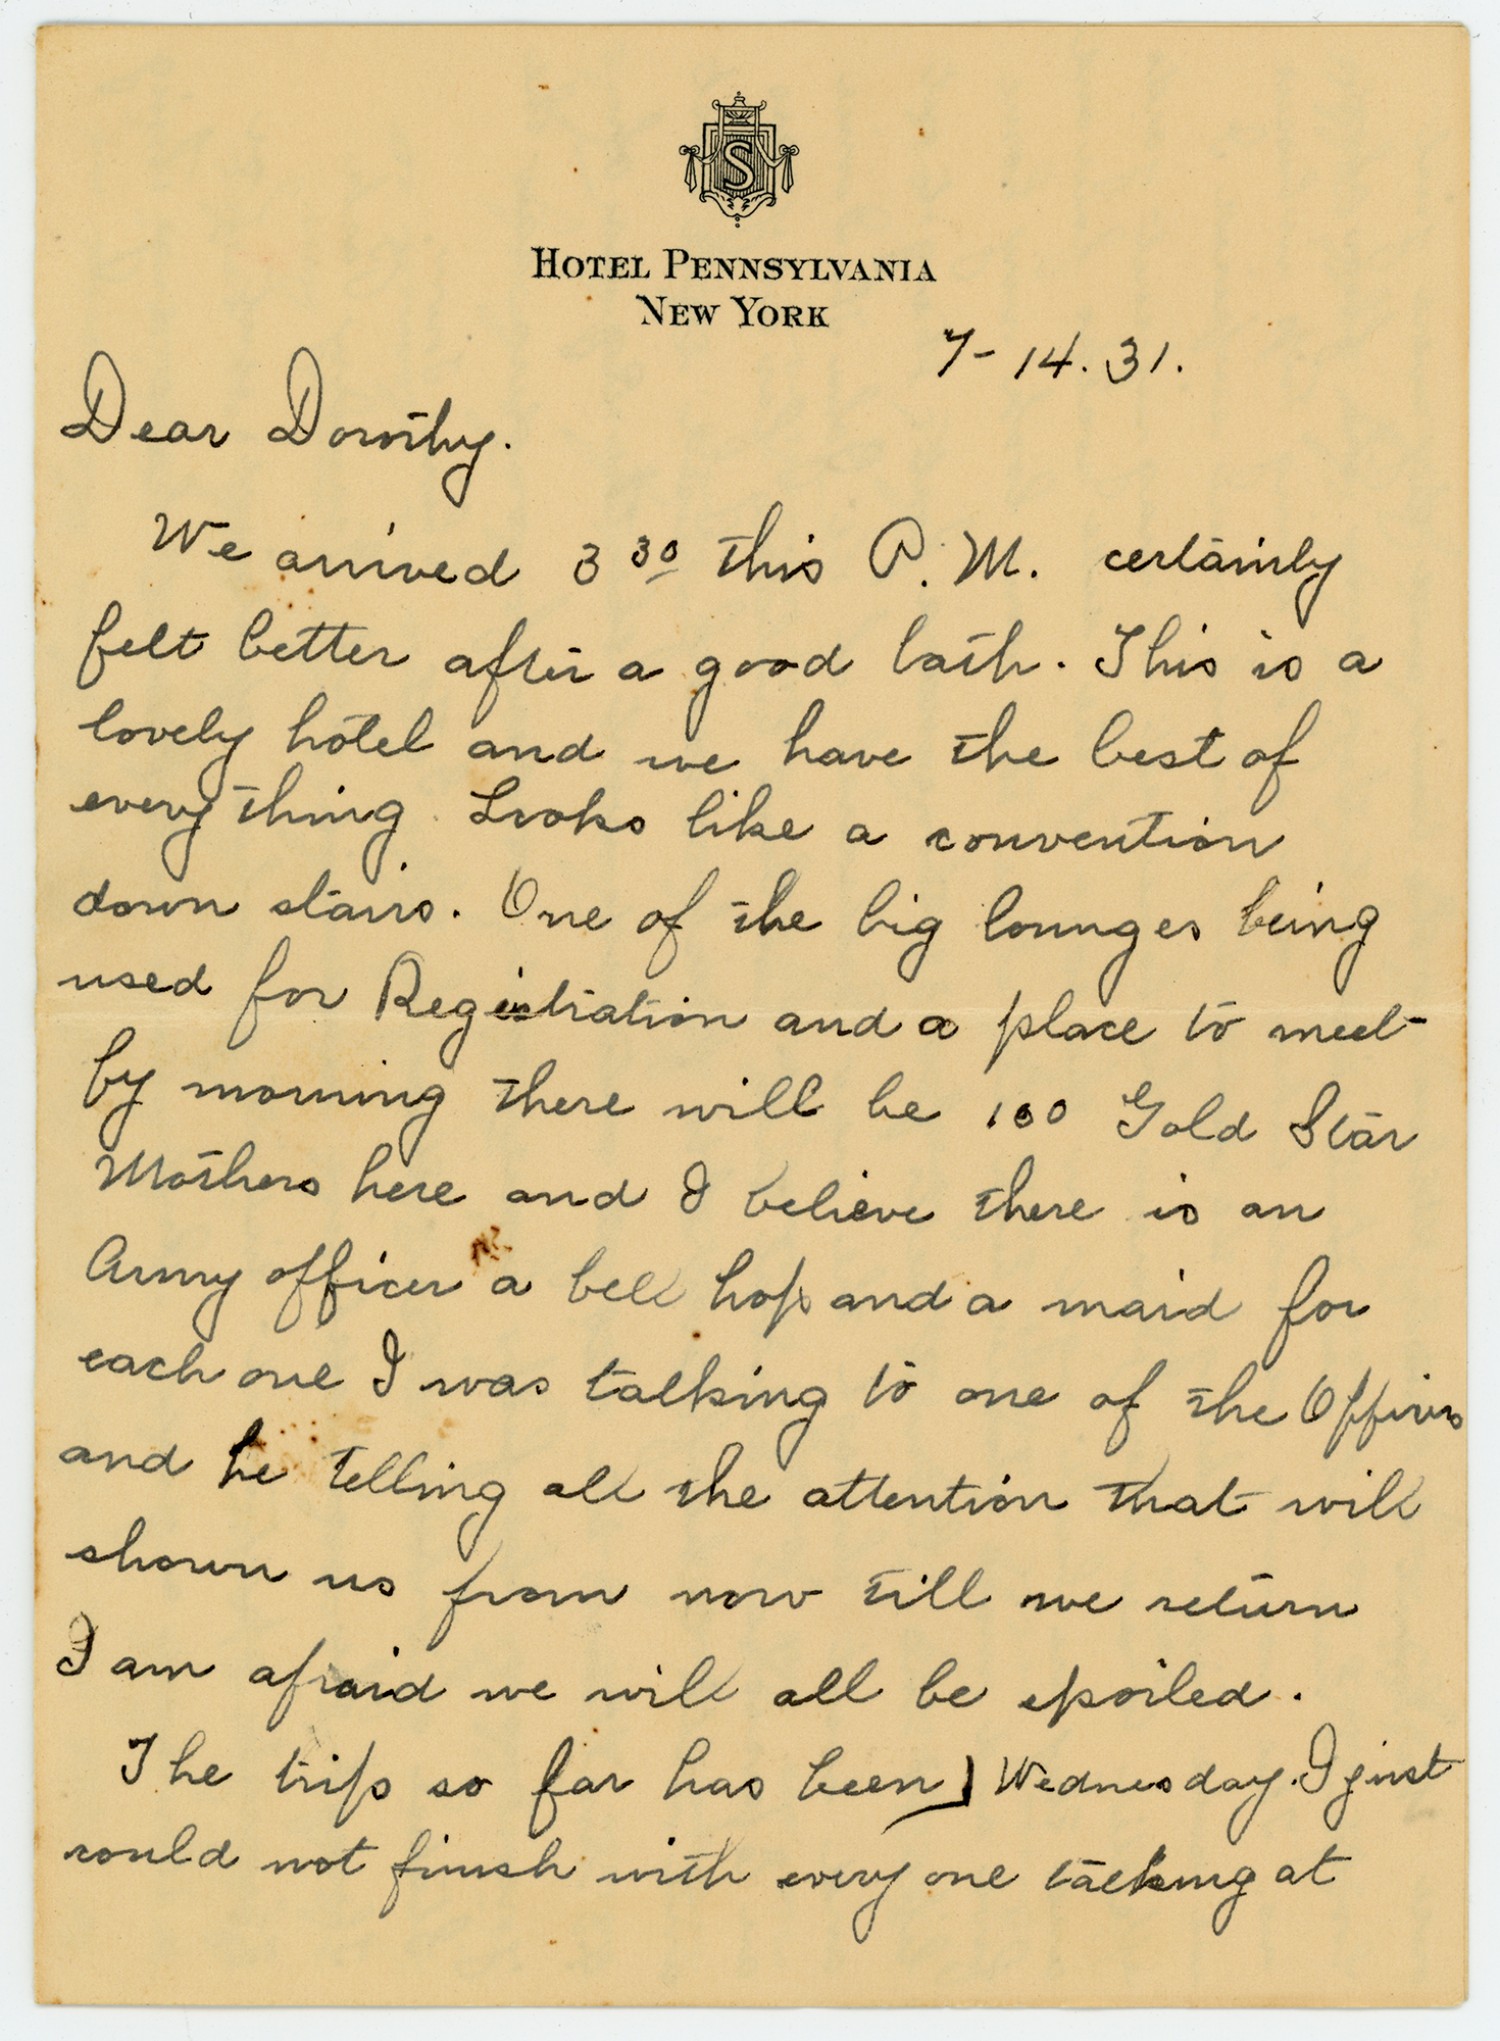 S
HOTEL PENNSYLVANIA
NEW YORK
7-14.31.
Dear Dorothy.
We arrived 3 30 this P.M. certainly
felt better after a good bath. This is a
lovely hotel and we have the best of
every thing. Looks like a convention
down stairs. One of the big lounges being
used for Registration and a place to meet-
by morning there will be 100 Gold Star
Mothers here and I believe there is an
Army officer a bell hop and a maid for
each one I was talking to one of the
and he telling all the attention that will
shown us from now till we return
I am afraid we will all be spoiled.
The trip so far has been) Wednesday. I just
could not finish with every one talking at